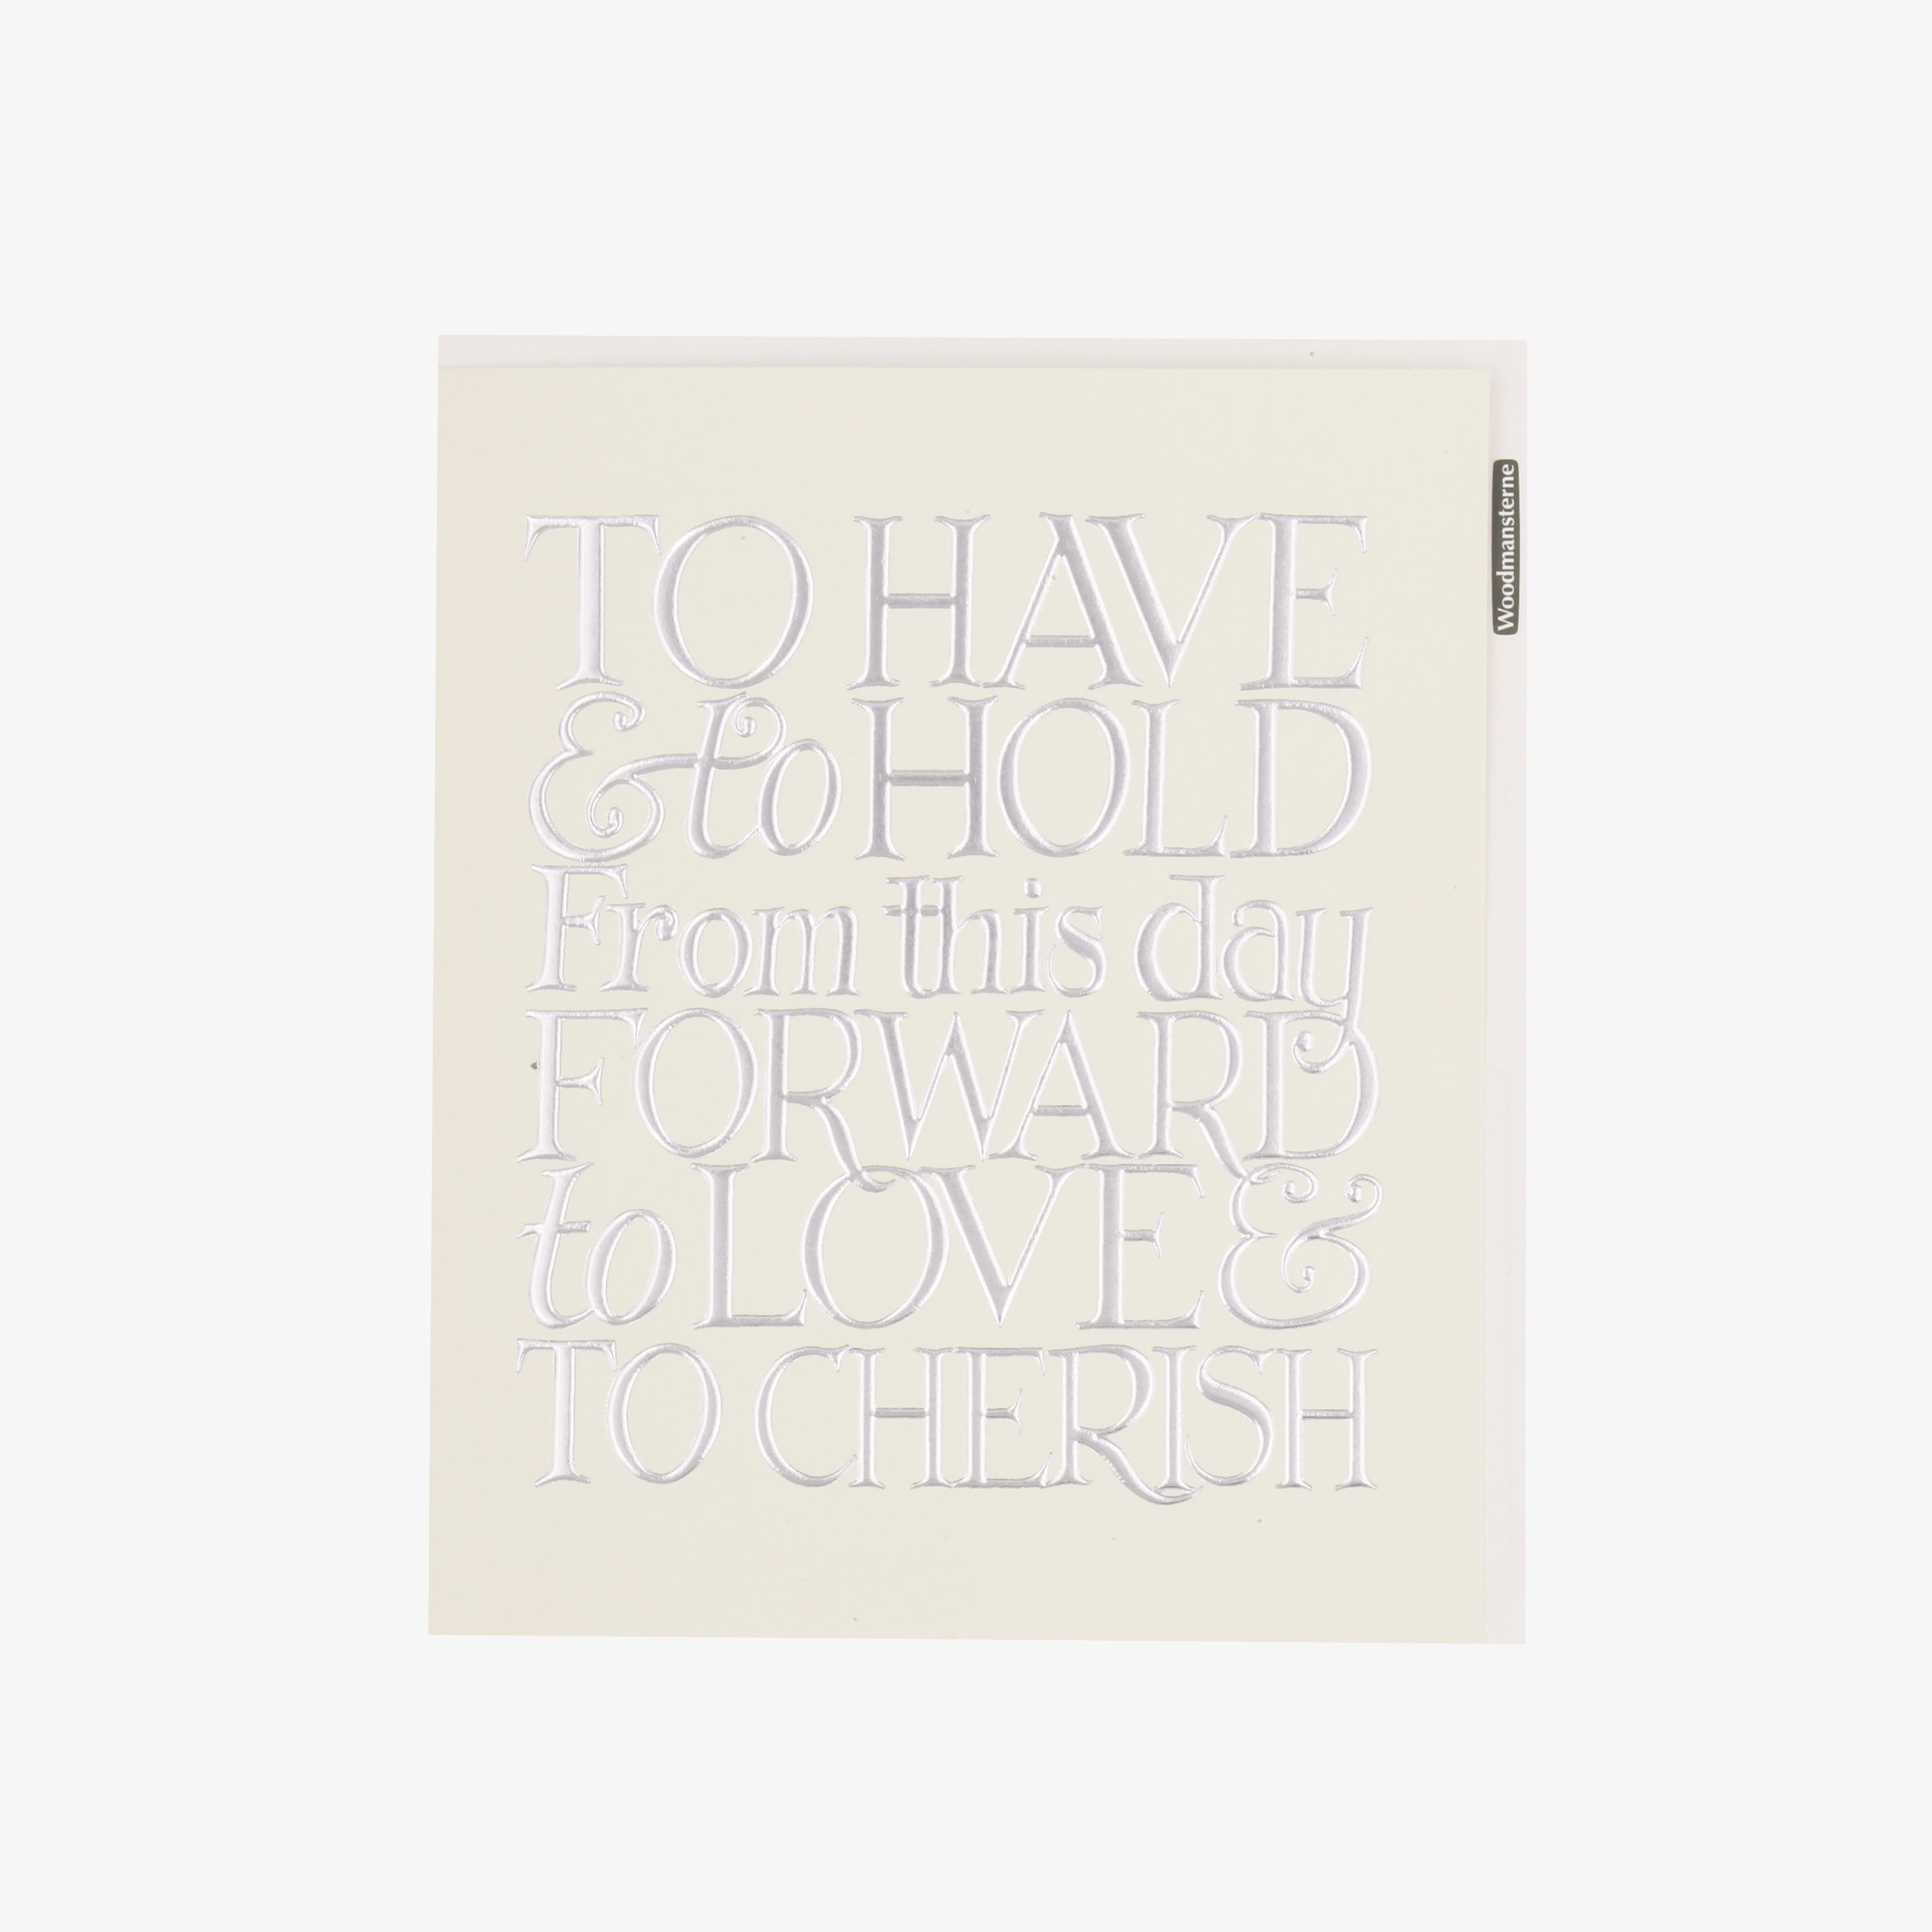 TO HAVE
& to HOLD
From this day
FORWARD
to LOVE &
TO CHERISH
Woodmansterne